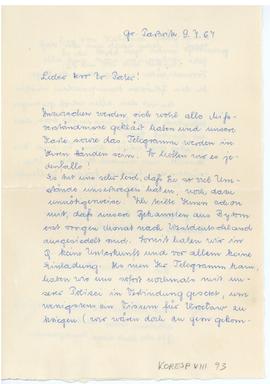 Gr. Särchen 9.7.67
Lieber Herr Dr. Pater!
Inzwischen werden sich wohl alle Miß-
verständnisse geklärt haben und unsere
Karte sowie das Telegramm werden in
Ihren Händen sein. So hoffen wir es je-
denfalls!
Es tut uns sehr leid, daß Sie so viel Um-
stände unsertwegen haben, noch dazu
unnötigerweise. Ich teilte Ihnen schon
mit, daß unsere Bekannten aus Bytom
erst vorigen Monat nach Westdeutschland
ausgesiedelt sind. Somit haben wir in
P. keine Unterkunft und vor allem keine
Einladung. Als nun Ihr Telegramm kam,
haben wir uns sofort nochmals mit un-
serer Polizei in Verbindung gesetzt, um
wenigstens ein Visum für Wrocław zu
kriegen (wir wären doch zu gern gekom-
KORESP VIII 93